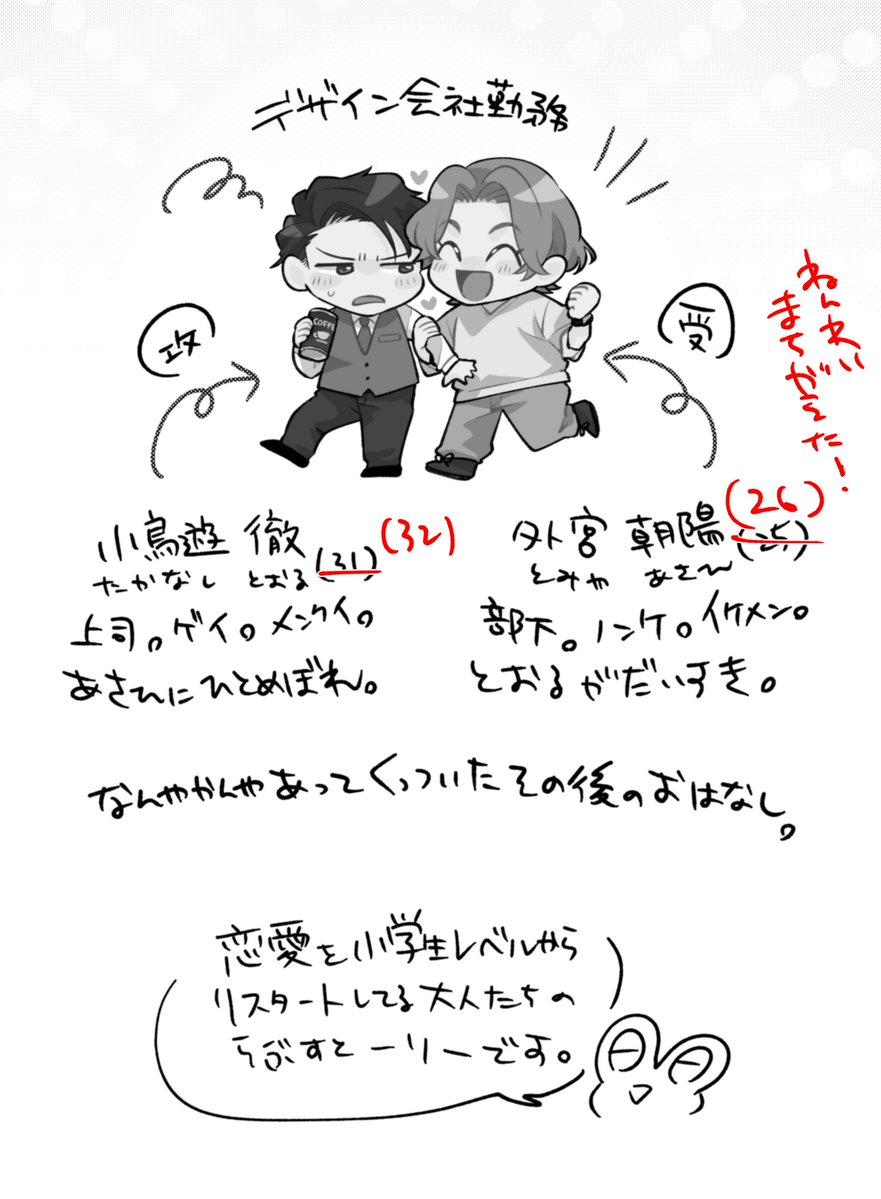 デザイン会社勤務
COFFE
攻
受
ねんれい
まちがえた!
小鳥遊 徹 (31) (32)
たかなし とおる
上司。ゲイ。メンクイ。
あさひにひとめぼれ。
外宮 朝陽 (25) (26)
とみや あさひ
部下。ノンケ。イケメン。
とおるがだいすき。
なんやかんやあってくっついたその後のおはなし。
恋愛を小学生レベルから
リスタートしてる大人たちの
らぶすとーりーです。